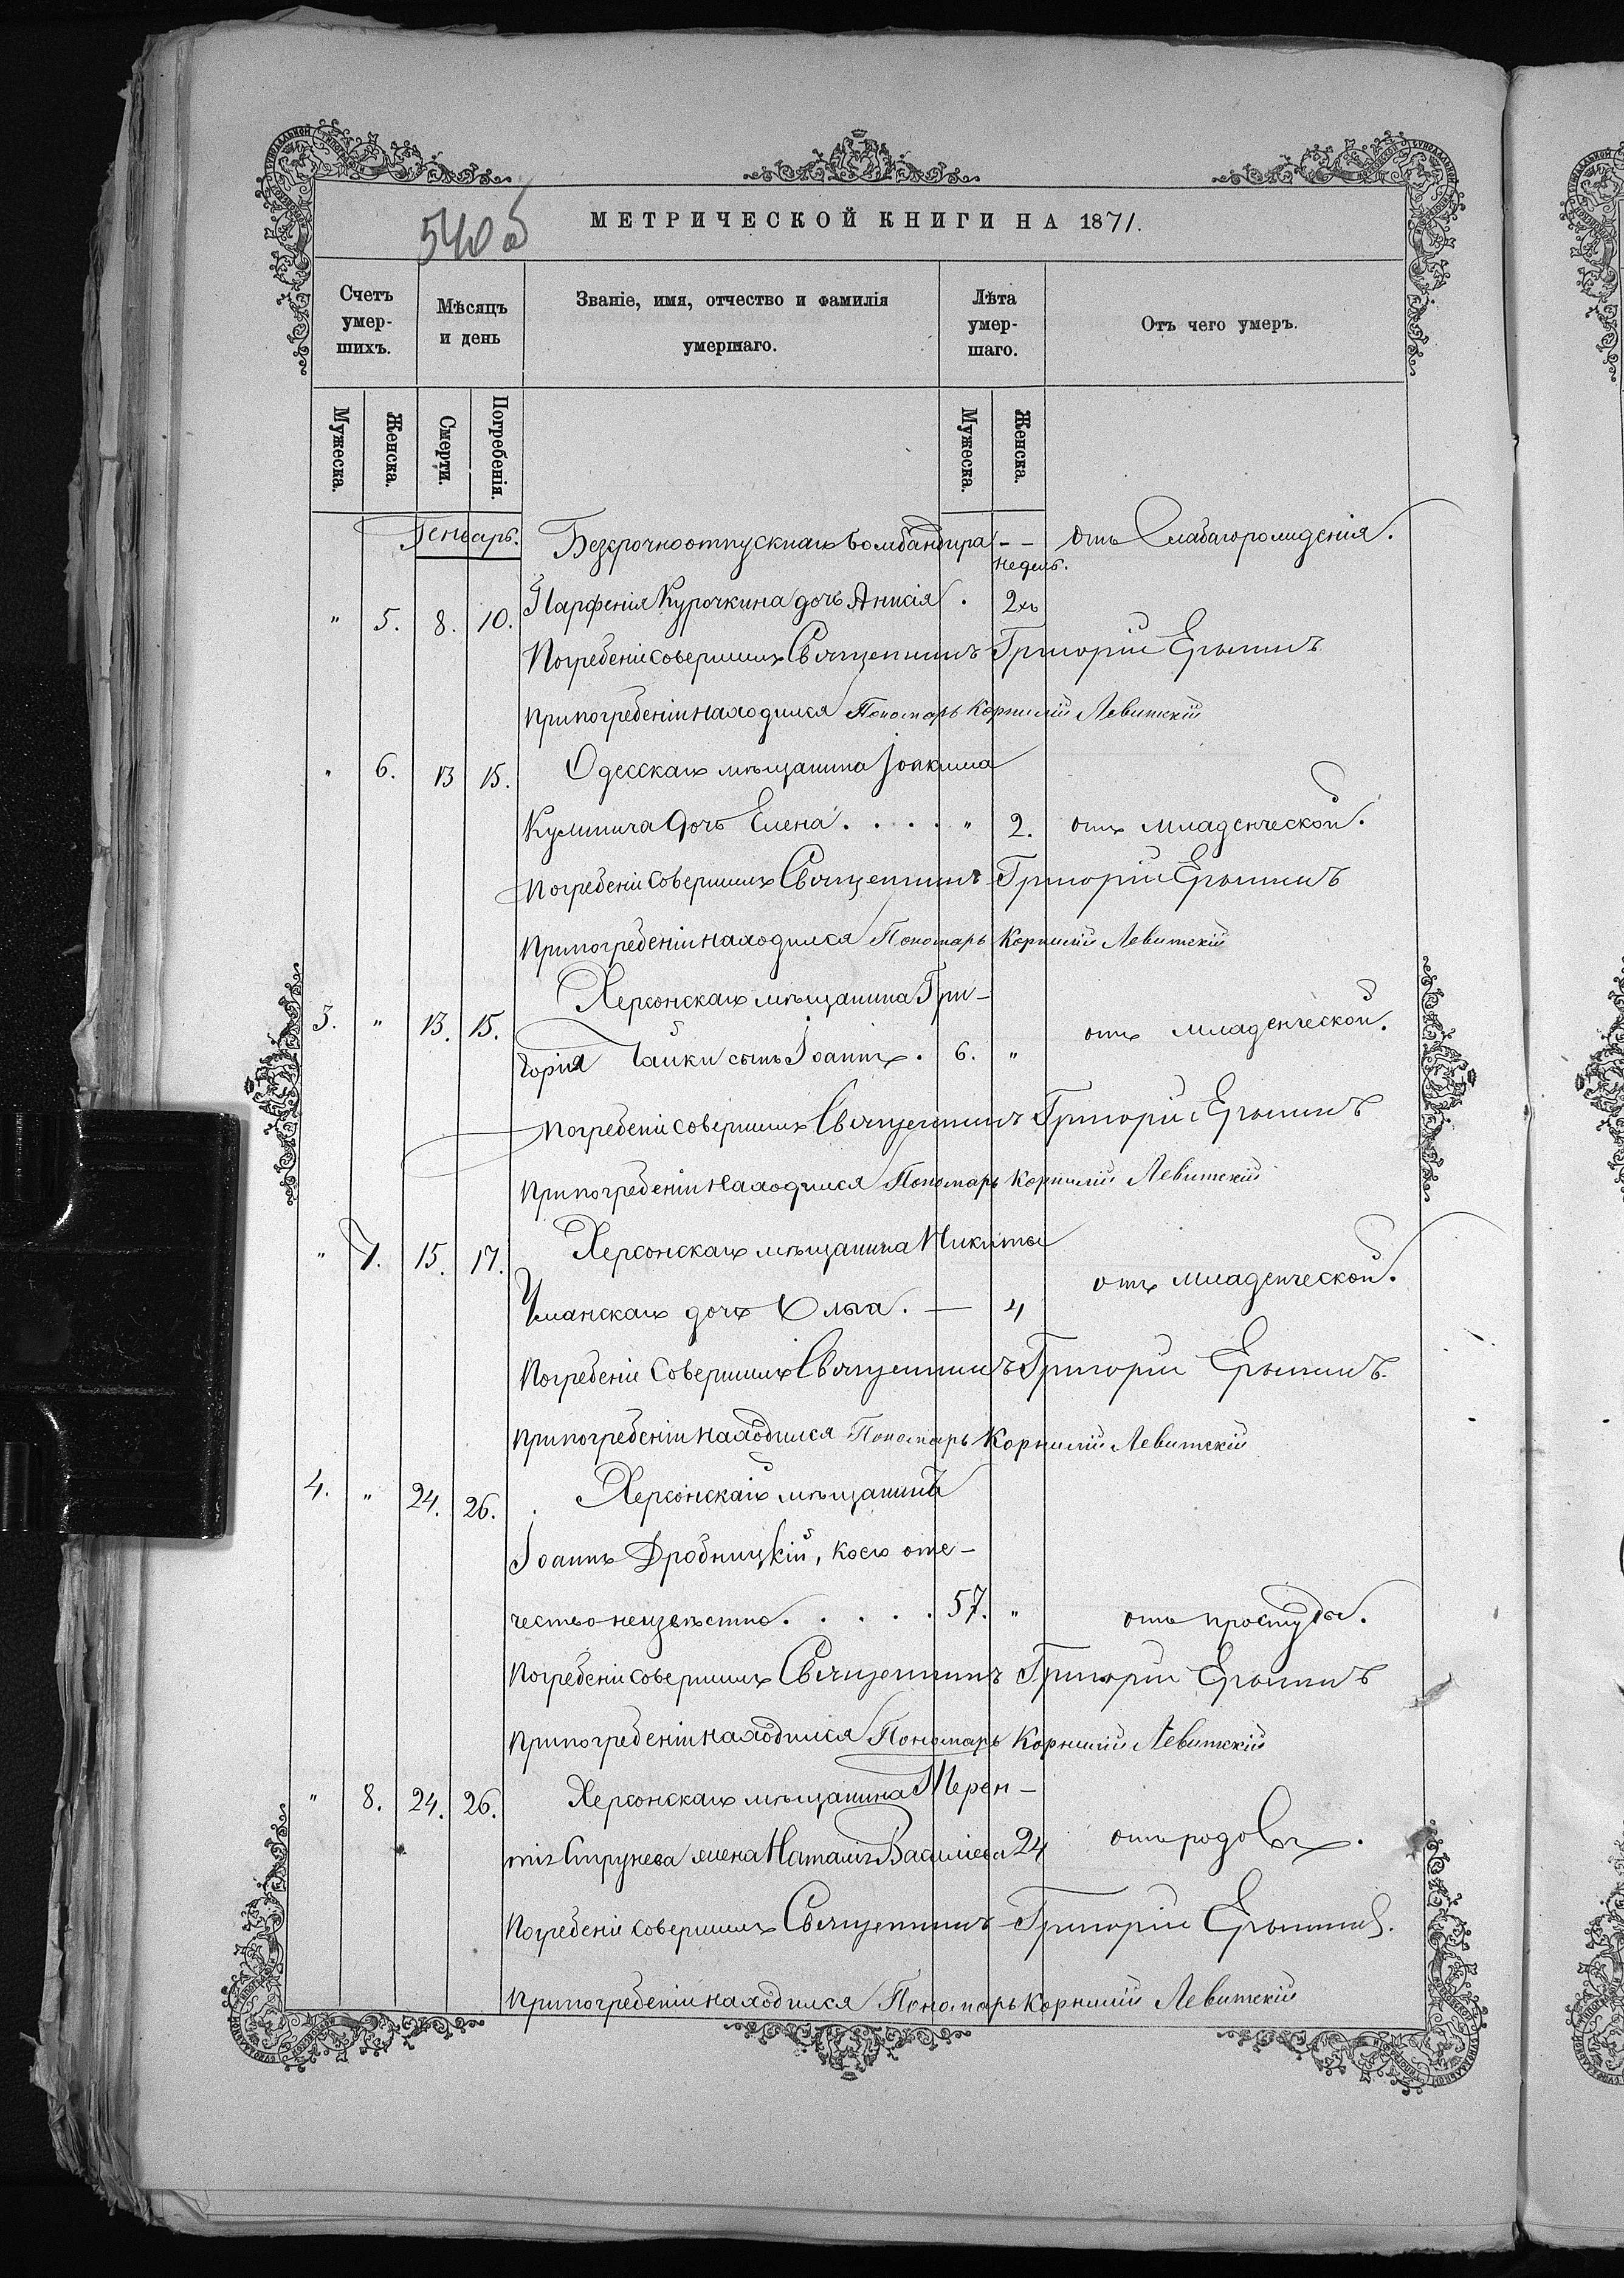 540 об
МЕТРИЧЕСКОЙ КНИГИ НА 1871.
Счетъ умер- шихъ.
Мѣсяцъ и день
Званіе, имя, отчество и фамилія умершаго.
Лѣта умер- шаго.
Отъ чего умеръ.
Мужеска.
Женска.
Смерти.
Погребенія.
Мужеска.
Женска.
Генварь.
Безсрочноотпускнаго бомбандира - - отъ Слабагорожденія.
недель.
" 5. 8. 10. Парфенія Курочкина дочь Анисія . 2хъ
Погребеніе совершилъ Священникъ Григорій
При погребеніи находился Пономарь Корнилій Левитскій
" 6. 13 15. Одесскаго мѣщанина Іоакима
Кулинича дочь Елена . . . . " 2. отъ младенческой.
Погребеніе совершилъ Священникъ Григорій
При погребеніи находился Пономарь Корнилій Левитскій
3. " 13. 15. Херсонскаго мѣщанина Гри-
горія Чайки сынъ Іоаннъ . 6. " отъ младенческой.
Погребеніе совершилъ Священникъ Григорій
При погребеніи находился Пономарь Корнилій Левитскій
" 7. 15. 17. Херсонскаго мѣщанина Никиты
Уманскаго дочь Ольга. — 4 отъ младенческой.
Погребеніе совершилъ Священникъ Григорій
При погребеніи находился Пономарь Корнилій Левитскій
4. " 24. 26. Херсонскій мѣщанинъ
Іоаннъ Дробницкій, коего оте-
чество неизвѣстно . . . . . 57. " отъ простуды.
Погребеніе совершилъ Священникъ Григорій
При погребеніи находился Пономарь Корнилій Левитскій
" 8. 24. 26. Херсонскаго мѣщанина
жена Наталія Василіева 24 отъ родовъ.
Погребеніе совершилъ Священникъ Григорій
При погребеніи находился Пономарь Корнилій Левитскій